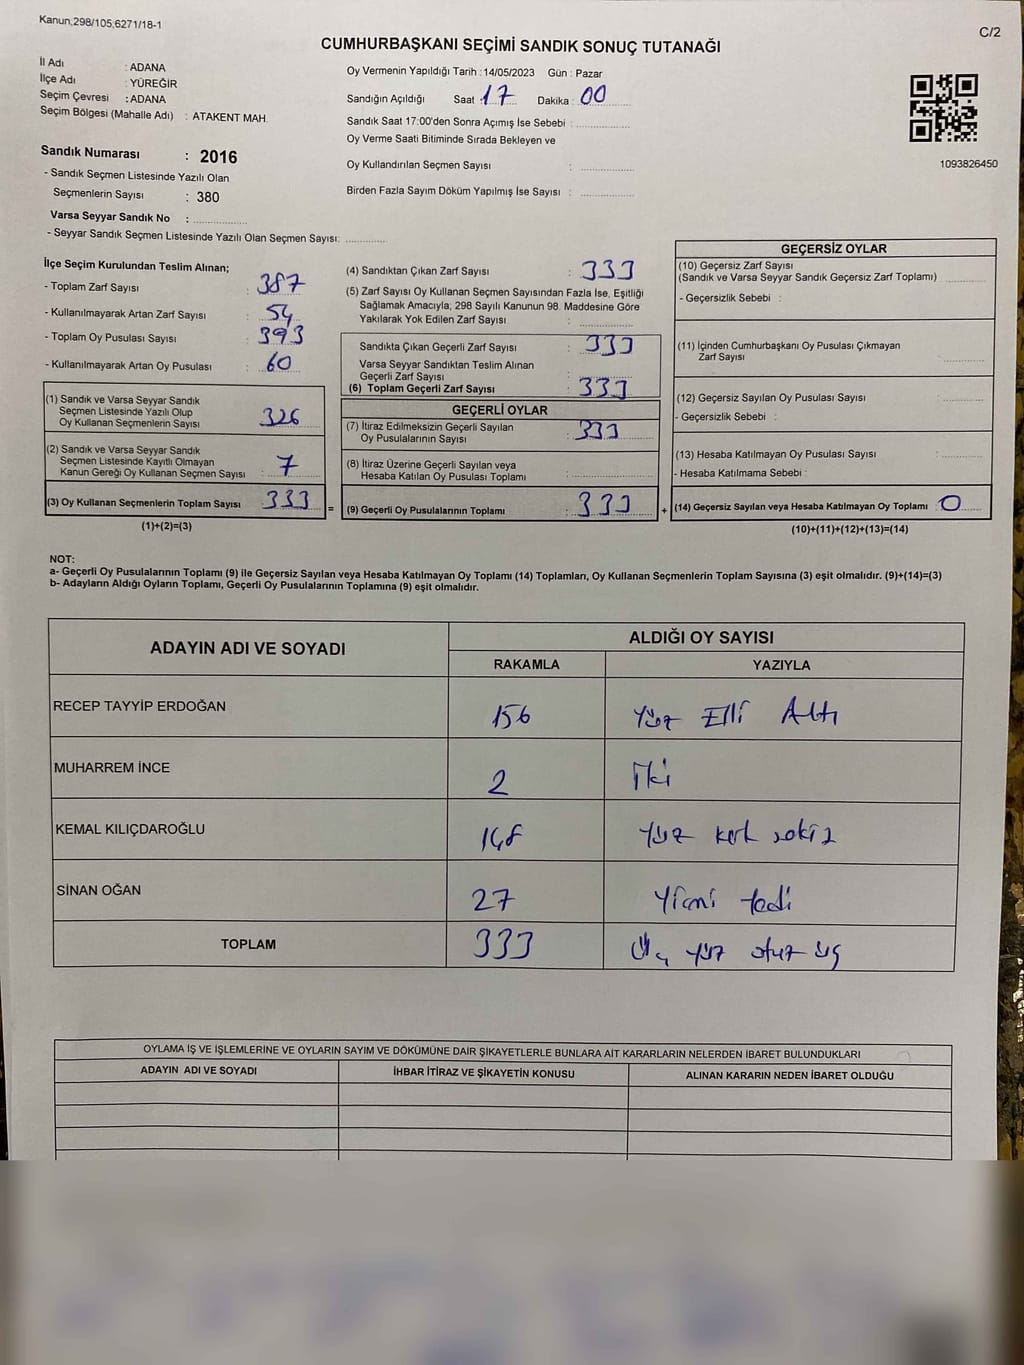 Kanun;298/105;6271/18-1
C/2
CUMHURBAŞKANI SEÇİMİ SANDIK SONUÇ TUTANAĞI
İl Adı : ADANA
İlçe Adı : YÜREĞİR
Seçim Çevresi : ADANA
Seçim Bölgesi (Mahalle Adı) : ATAKENT MAH.
Sandık Numarası : 2016
- Sandık Seçmen Listesinde Yazılı Olan
Seçmenlerin Sayısı : 380
Varsa Seyyar Sandık No :
- Seyyar Sandık Seçmen Listesinde Yazılı Olan Seçmen Sayısı:
Oy Vermenin Yapıldığı Tarih : 14/05/2023 Gün : Pazar
Sandığın Açıldığı Saat : 17 Dakika : 00
Sandık Saat 17:00'den Sonra Açımış İse Sebebi :
Oy Verme Saati Bitiminde Sırada Bekleyen ve
Oy Kullandırılan Seçmen Sayısı :
Birden Fazla Sayım Döküm Yapılmış İse Sayısı :
1093826450
İlçe Seçim Kurulundan Teslim Alınan;
- Toplam Zarf Sayısı : 387
- Kullanılmayarak Artan Zarf Sayısı : 54
- Toplam Oy Pusulası Sayısı : 393
- Kullanılmayarak Artan Oy Pusulası : 60
(1) Sandık ve Varsa Seyyar Sandık
Seçmen Listesinde Yazılı Olup
Oy Kullanan Seçmenlerin Sayısı : 326
(2) Sandık ve Varsa Seyyar Sandık
Seçmen Listesinde Kayıtlı Olmayan
Kanun Gereği Oy Kullanan Seçmen Sayısı : 7
(3) Oy Kullanan Seçmenlerin Toplam Sayısı : 333 =
(1)+(2)=(3)
(4) Sandıktan Çıkan Zarf Sayısı : 333
(5) Zarf Sayısı Oy Kullanan Seçmen Sayısından Fazla İse, Eşitliği
Sağlamak Amacıyla, 298 Sayılı Kanunun 98. Maddesine Göre
Yakılarak Yok Edilen Zarf Sayısı :
Sandıkta Çıkan Geçerli Zarf Sayısı : 333
Varsa Seyyar Sandıktan Teslim Alınan
Geçerli Zarf Sayısı :
(6) Toplam Geçerli Zarf Sayısı : 333
GEÇERLİ OYLAR
(7) İtiraz Edilmeksizin Geçerli Sayılan
Oy Pusulalarının Sayısı : 333
(8) İtiraz Üzerine Geçerli Sayılan veya
Hesaba Katılan Oy Pusulası Toplamı :
(9) Geçerli Oy Pusulalarının Toplamı : 333 +
GEÇERSİZ OYLAR
(10) Geçersiz Zarf Sayısı
(Sandık ve Varsa Seyyar Sandık Geçersiz Zarf Toplamı) :
- Geçersizlik Sebebi :
(11) İçinden Cumhurbaşkanı Oy Pusulası Çıkmayan
Zarf Sayısı :
(12) Geçersiz Sayılan Oy Pusulası Sayısı :
- Geçersizlik Sebebi :
(13) Hesaba Katılmayan Oy Pusulası Sayısı :
- Hesaba Katılmama Sebebi :
(14) Geçersiz Sayılan veya Hesaba Katılmayan Oy Toplamı : 0
(10)+(11)+(12)+(13)=(14)
NOT:
a- Geçerli Oy Pusulalarının Toplamı (9) ile Geçersiz Sayılan veya Hesaba Katılmayan Oy Toplamı (14) Toplamları, Oy Kullanan Seçmenlerin Toplam Sayısına (3) eşit olmalıdır. (9)+(14)=(3)
b- Adayların Aldığı Oyların Toplamı, Geçerli Oy Pusulalarının Toplamına (9) eşit olmalıdır.
ADAYIN ADI VE SOYADI ALDIĞI OY SAYISI
RAKAMLA YAZIYLA
RECEP TAYYİP ERDOĞAN 156 Yüz Elli Altı
MUHARREM İNCE 2 İki
KEMAL KILIÇDAROĞLU 148 Yüz kırk sekiz
SİNAN OĞAN 27 Yirmi Yedi
TOPLAM 333 Üç yüz otuz üç
OYLAMA İŞ VE İŞLEMLERİNE VE OYLARIN SAYIM VE DÖKÜMÜNE DAİR ŞİKAYETLERLE BUNLARA AİT KARARLARIN NELERDEN İBARET BULUNDUKLARI
ADAYIN ADI VE SOYADI İHBAR İTİRAZ VE ŞİKAYETİN KONUSU ALINAN KARARIN NEDEN İBARET OLDUĞU